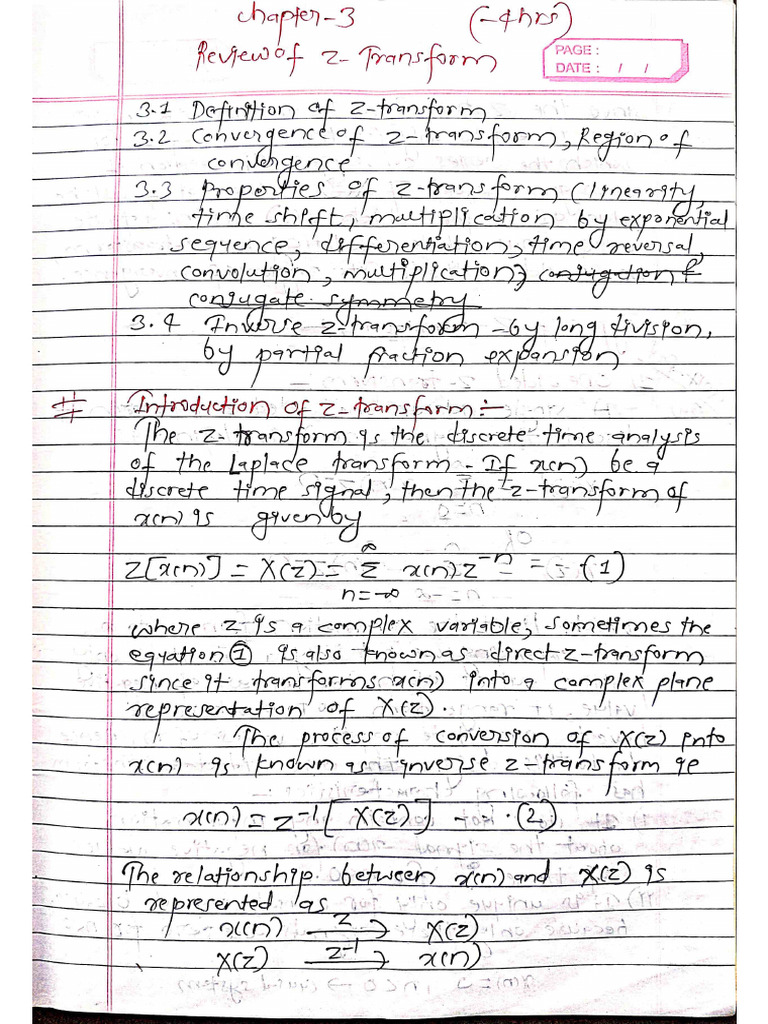 Chapter-3 (-4hrs)
Review of Z-Transform
PAGE :
DATE : / /
3.1 Definition of Z-transform
3.2 Convergence of Z-transform, Region of
convergence
3.3 Properties of Z-transform (linearity,
time shift, multiplication by exponential
sequence, differentiation, time reversal,
convolution, multiplication, conjugation &
conjugate symmetry
3.4 Inverse Z-transform - by long division,
by partial fraction expansion.
# Introduction of Z-transform:-
The Z-transform is the discrete time analysis
of the Laplace transform. If x(n) be a
discrete time signal, then the Z-transform of
x(n) is given by
Z[x(n)] = X(z) = ∞ Σ n=-∞ x(n) z⁻ⁿ = - (1)
where z is a complex variable, sometimes the
equation ① is also known as direct z-transform
since it transforms x(n) into a complex plane
representation of X(z).
The process of conversion of X(z) into
x(n) is known as inverse z-transform ie
x(n) = z⁻¹ [X(z)] - - . (2)
The relationship between x(n) and X(z) is
represented as
x(n) —z→ X(z)
X(z) —z⁻¹→ x(n)